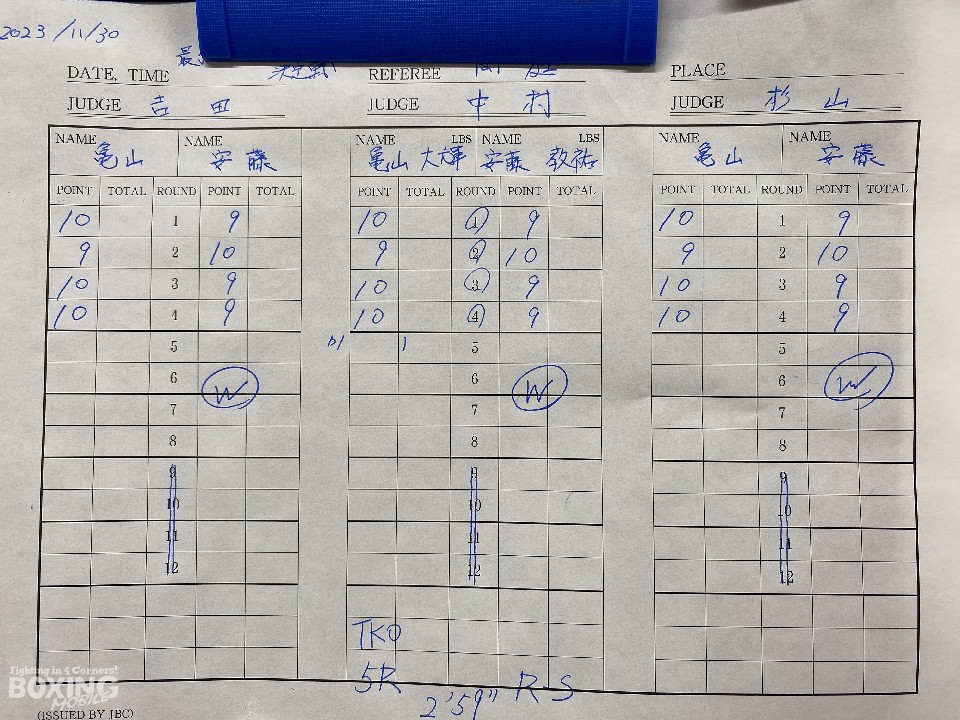 2023/11/30
DATE, TIME REFEREE PLACE
JUDGE 吉田 JUDGE 中村 JUDGE 杉山
NAME NAME NAME LBS NAME LBS NAME NAME
亀山 安藤 亀山 大輝 安藤 教祐 亀山 安藤
POINT TOTAL ROUND POINT TOTAL POINT TOTAL ROUND POINT TOTAL POINT TOTAL ROUND POINT TOTAL
10 1 9 10 1 9 10 1 9
9 2 10 9 2 10 9 2 10
10 3 9 10 3 9 10 3 9
10 4 9 10 4 9 10 4 9
5 1 5 5
6 W 6 W 6 W
7 7 7
8 8 8
9 9 9
10 10 10
11 11 11
12 12 12
TKO
5R 2'59" R.S
Fighting in 4 Corners!
BOXING
MOBILE
(ISSUED BY JBC)